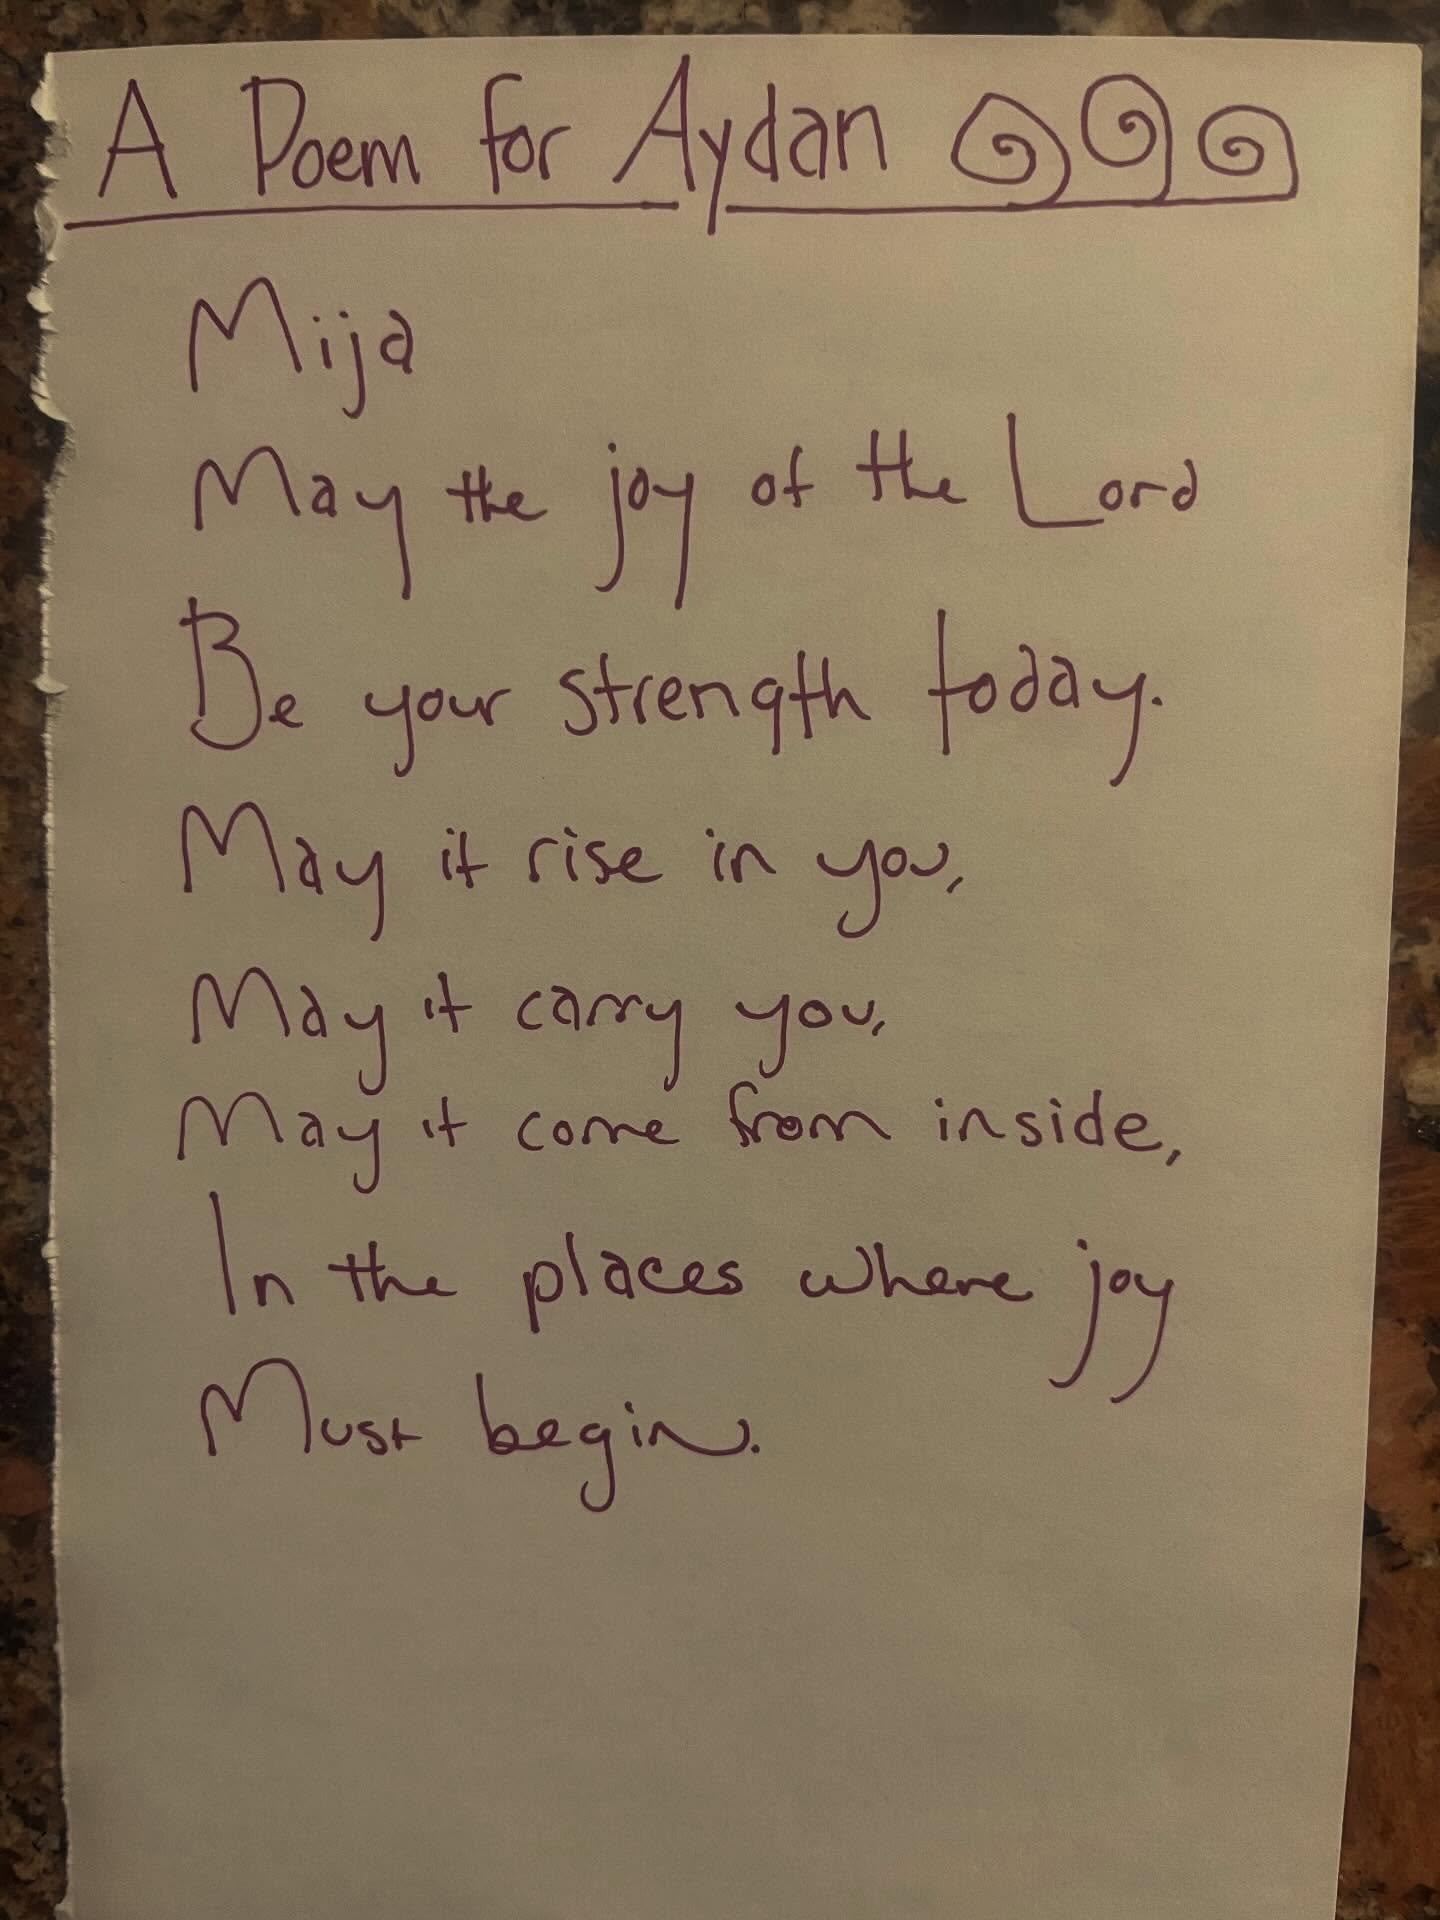 A Poem for Aydan
Mija
May the joy of the Lord
Be your strength today.
May it rise in you,
May it carry you,
May it come from inside,
In the places where joy
Must begin.